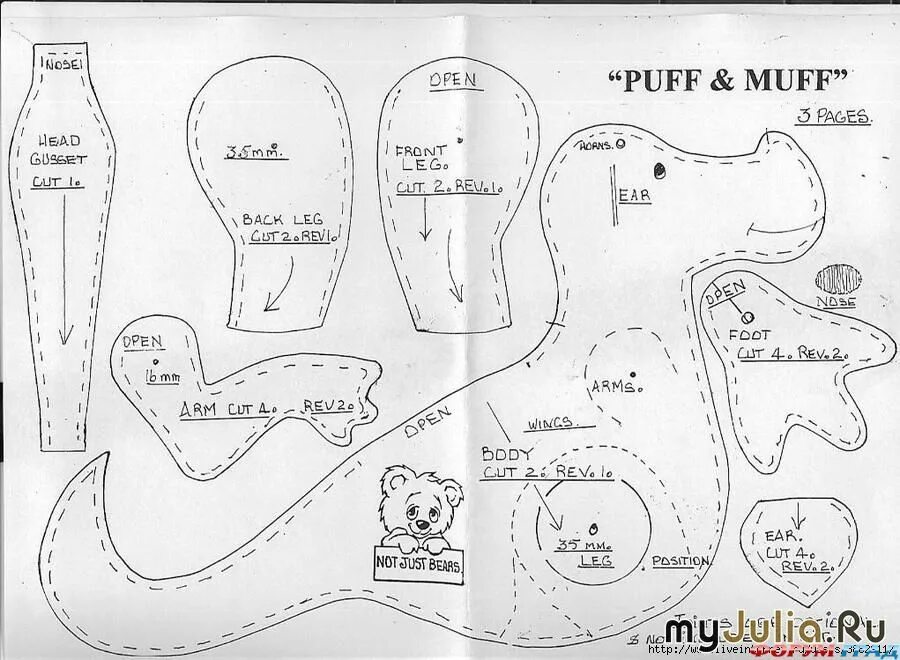 "PUFF & MUFF"
3 PAGES.
NOSE
HEAD
GUSSET
CUT 1.
35mm.
BACK LEG
CUT 2. REV 1.
OPEN
FRONT
LEG.
CUT. 2. REV. 1.
HORNS.
EAR
NOSE
OPEN
FOOT
CUT 4. REV. 2.
OPEN
16mm
ARM CUT 4. REV 2.
OPEN
ARMS.
WINGS.
BODY
CUT 2. REV. 1.
35 MM.
LEG
POSITION
EAR.
CUT 4.
REV. 2.
NOT JUST BEARS.
myJulia.Ru